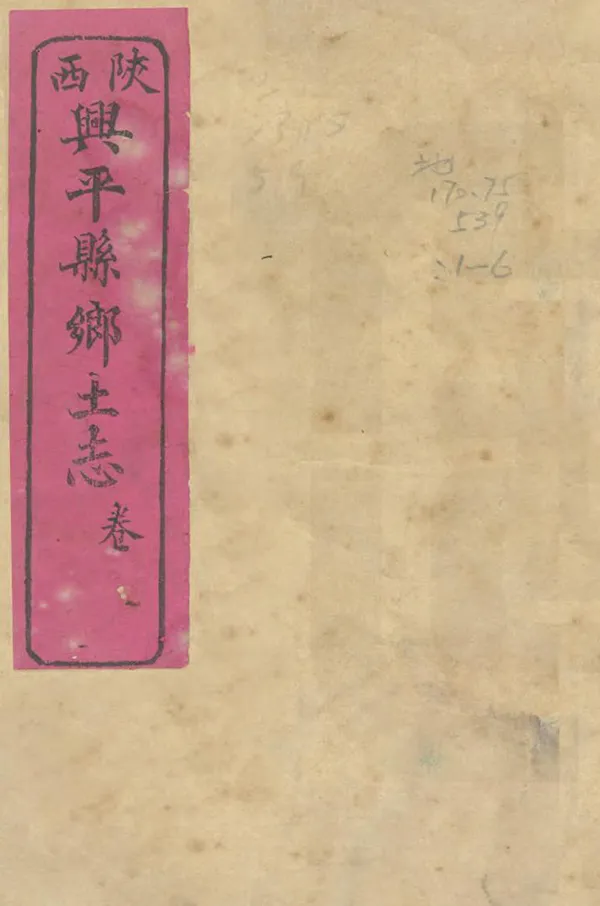 陝西
興平縣鄉土志
卷
地
170.75
539
:1-6